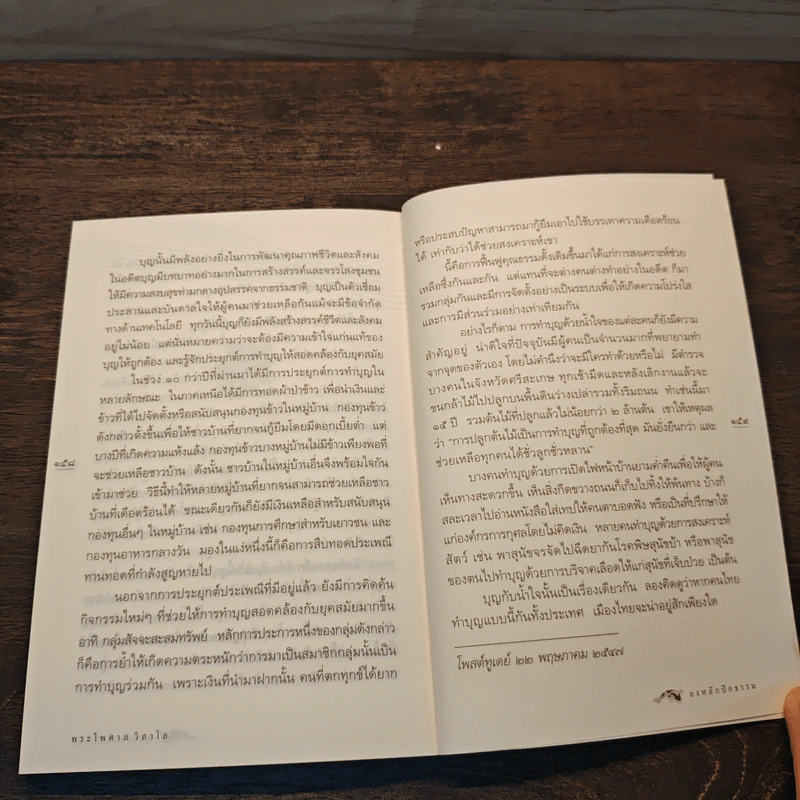 บุญนั้นมีพลังอย่างยิ่งในการพัฒนาคุณภาพชีวิตและสังคม
ในอดีตบุญมีบทบาทอย่างมากในการสร้างสรรค์และจรรโลงชุมชน
ให้มีความสงบสุขท่ามกลางอุปสรรคจากธรรมชาติ บุญเป็นตัวเชื่อม
ประสานและบันดาลใจให้ผู้คนมาช่วยเหลือกันแม้จะมีข้อจำกัด
ทางด้านเทคโนโลยี ทุกวันนี้บุญก็ยังมีพลังสร้างสรรค์ชีวิตและสังคม
อยู่ไม่น้อย แต่นั่นหมายความว่าจะต้องมีความเข้าใจแก่นแท้ของ
บุญให้ถูกต้อง และรู้จักประยุกต์การทำบุญให้สอดคล้องกับยุคสมัย
ในช่วง ๑๐ กว่าปีที่ผ่านมาได้มีการประยุกต์การทำบุญใน
หลายลักษณะ ในภาคเหนือได้มีการทอดผ้าป่าข้าว เพื่อนำเงินและ
ข้าวที่ได้ไปจัดตั้งหรือสนับสนุนกองทุนข้าวในหมู่บ้าน กองทุนข้าว
ดังกล่าวตั้งขึ้นเพื่อให้ชาวบ้านที่ยากจนกู้ยืมโดยมีดอกเบี้ยต่ำ แต่
บางปีที่เกิดความแห้งแล้ง กองทุนข้าวบางหมู่บ้านไม่มีข้าวเพียงพอที่
จะช่วยเหลือชาวบ้าน ดังนั้น ชาวบ้านในหมู่บ้านอื่นจึงพร้อมใจกัน
เข้ามาช่วย วิธีนี้ทำให้หลายหมู่บ้านที่ยากจนสามารถช่วยเหลือชาว
บ้านที่เดือดร้อนได้ ขณะเดียวกันก็ยังมีเงินเหลือสำหรับสนับสนุน
กองทุนอื่นๆ ในหมู่บ้าน เช่น กองทุนการศึกษาสำหรับเยาวชน และ
กองทุนอาหารกลางวัน มองในแง่หนึ่งนี้ก็คือการสืบทอดประเพณี
ทานทอดที่กำลังสูญหายไป
นอกจากการประยุกต์ประเพณีที่มีอยู่แล้ว ยังมีการคิดค้น
กิจกรรมใหม่ๆ ที่ช่วยให้การทำบุญสอดคล้องกับยุคสมัยมากขึ้น
อาทิ กลุ่มสัจจะสะสมทรัพย์ หลักการประการหนึ่งของกลุ่มดังกล่าว
ก็คือการย้ำให้เกิดความตระหนักว่าการมาเป็นสมาชิกกลุ่มนั้นเป็น
การทำบุญร่วมกัน เพราะเงินที่นำมาฝากนั้น คนที่ตกทุกข์ได้ยาก
๑๕๘
พระไพศาล วิสาโล
หรือประสบปัญหาสามารถมากู้ยืมเอาไปใช้บรรเทาความเดือดร้อน
ได้ เท่ากับว่าได้ช่วยสงเคราะห์เขา
นี้คือการฟื้นฟูคุณธรรมดั้งเดิมขึ้นมาได้แก่การสงเคราะห์ช่วย
เหลือซึ่งกันและกัน แต่แทนที่จะต่างคนต่างทำอย่างในอดีต ก็มา
รวมกลุ่มกันและมีการจัดตั้งอย่างเป็นระบบเพื่อให้เกิดความโปร่งใส
และการมีส่วนร่วมอย่างเท่าเทียมกัน
อย่างไรก็ตาม การทำบุญด้วยน้ำใจของแต่ละคนก็ยังมีความ
สำคัญอยู่ น่าดีใจที่ปัจจุบันมีผู้คนเป็นจำนวนมากที่พยายามทำ
จากจุดของตัวเอง โดยไม่คำนึงว่าจะมีใครทำด้วยหรือไม่ มีตำรวจ
บางคนในจังหวัดศรีสะเกษ ทุกเช้ามืดและหลังเลิกงานแล้วจะ
ขนกล้าไม้ไปปลูกบนพื้นดินว่างเปล่ารวมทั้งริมถนน ทำเช่นนี้มา
๑๕ ปี รวมต้นไม้ที่ปลูกแล้วไม่น้อยกว่า ๒ ล้านต้น เขาให้เหตุผล
ว่า "การปลูกต้นไม้เป็นการทำบุญที่ถูกต้องที่สุด มันยั่งยืนกว่า และ
ช่วยเหลือทุกคนได้ชั่วลูกชั่วหลาน"
บางคนทำบุญด้วยการเปิดไฟหน้าบ้านยามค่ำคืนเพื่อให้ผู้คน
เห็นทางสะดวกขึ้น เห็นสิ่งกีดขวางถนนก็เก็บไปทิ้งให้พ้นทาง บ้างก็
สละเวลาไปอ่านหนังสือใส่เทปให้คนตาบอดฟัง หรือเป็นที่ปรึกษาให้
แก่องค์กรการกุศลโดยไม่คิดเงิน หลายคนทำบุญด้วยการสงเคราะห์
สัตว์ เช่น พาสุนัขจรจัดไปฉีดยากันโรคพิษสุนัขบ้า หรือพาสุนัข
ของตนไปทำบุญด้วยการบริจาคเลือดให้แก่สุนัขที่เจ็บป่วย เป็นต้น
บุญกับน้ำใจนั้นเป็นเรื่องเดียวกัน ลองคิดดูว่าหากคนไทย
ทำบุญแบบนี้กันทั้งประเทศ เมืองไทยจะน่าอยู่สักเพียงใด
โพสต์ทูเดย์ ๒๒ พฤษภาคม ๒๕๔๗
๑๕๙
ลงหลักปักธรรม